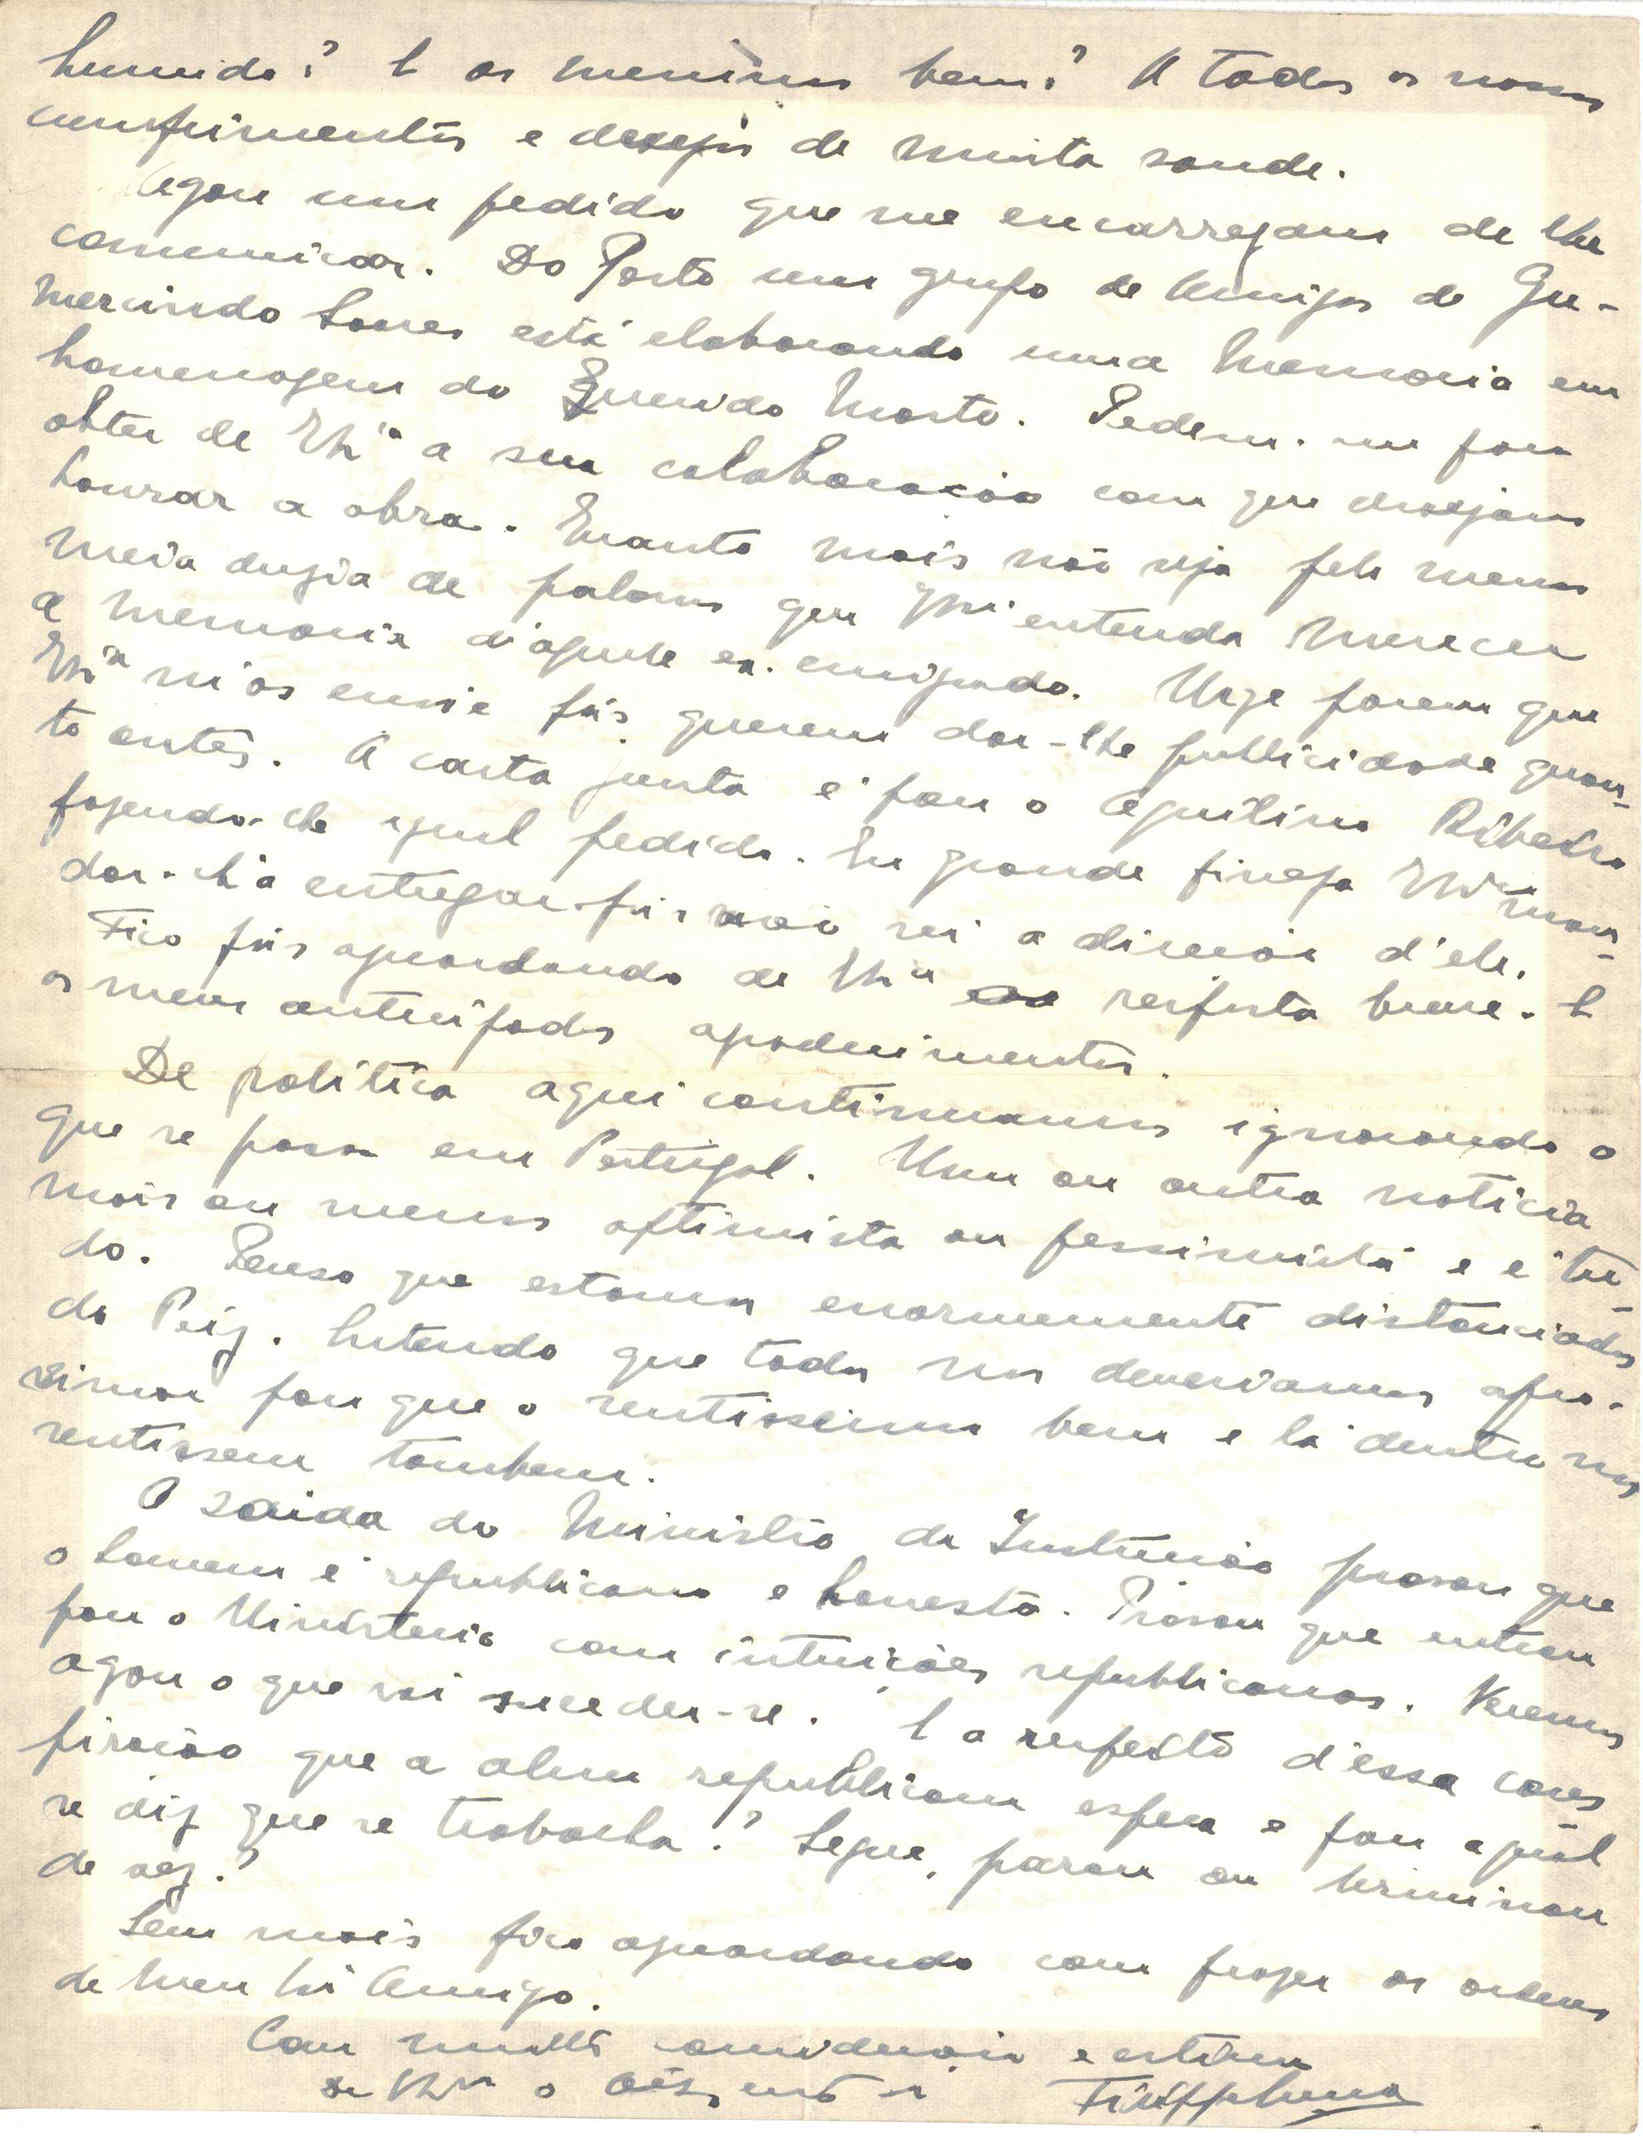 humida? E os meninos bem? A todos os nossos
cumprimentos e desejos de muita saude.
Agora um pedido que me encarregam de lhe
comunicar. Do Porto um grupo de Amigos de Gu-
mercindo Soares está elaborando uma Memoria em
homenagem do Querido Morto. Pedem-me para
obter de V. Ex.ª a sua colaboração com que desejam
honrar a obra. Quanto mais não seja pelo menos
meia duzia de palavras que entenda merecer
a memoria d'aquele ex. emigrado. Urge porem que
V. Ex.ª m'os envie pois querem dar-lhe publicidade quan-
to antes. A carta junta é para o Aquilino Ribeiro
fazendo-lhe igual pedido. Era grande fineza man-
dar-lh'a entregar pois não sei a direcção d'ele.
Fico pois aguardando de resposta breve. E
os meus antecipados agradecimentos.
De politica aqui continuamos ignorando o
que se passa em Portugal. Uma ou outra noticia
mais ou menos optimista ou pessimista e é tu-
do. Penso que estamos enormemente distanciados
do Paiz. Entendo que todos nos deveriamos apro-
ximar para que o sentissemos bem e lá dentro nos
sentissem tambem.
A saida do Ministro da Instrução provou que
o homem é republicano e honesto. Provou que entrou
para o Ministerio com intuições republicanas. Veremos
agora o que vai suceder-se. E a respeito d'essa cons
piração que a alma republicana espera e para a qual
se diz que se trabalha? Segue, parou ou terminou
de vez?
Sem mais fico aguardando com prazer as ordens
de Meu Amigo.
Com muita consideração e estima
de o